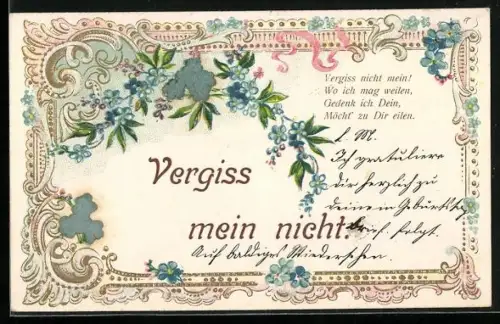 Vergiss nicht mein!
Wo ich mag weilen,
Gedenk ich Dein,
Möcht' zu Dir eilen.
L. M.
Ich gratuliere
dir herzlich zu
deinem Geburtstag
Vergiss
mein nicht.
Brief folgt.
Auf baldiges Wiedersehen.